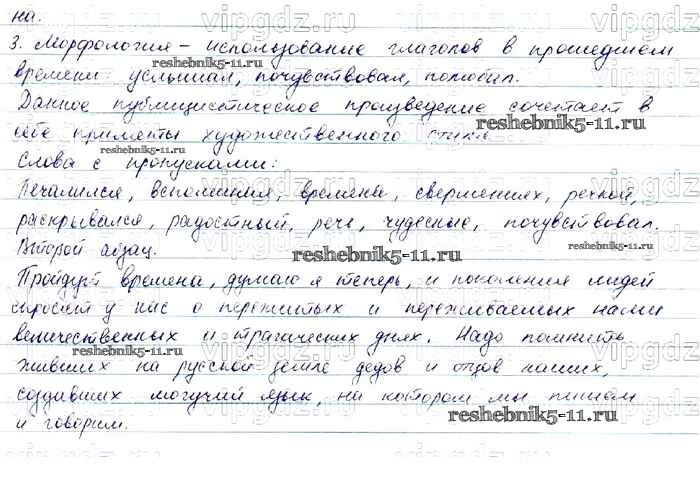 на.
3. Морфология – использование глаголов в прошедшем
времени услышал, почувствовал, полюбил.
Данное публицистическое произведение сочетает в
себе приметы художественного стиля.
Слова с пропусками:
Печалился, вспоминая, времена, свершениях, речной,
раскрывался, радостный, речь, чудесные, почувствовал.
Второй абзац.
Пройдут времена, думаю я теперь, и поколения людей
спросят у нас о пережитых и переживаемых нами
величественных и трагических днях. Надо помнить
живших на русской земле дедов и отцов наших,
создавших могучий язык, на котором мы пишем
и говорим.
vipgdz.ru
reshebnik5-11.ru